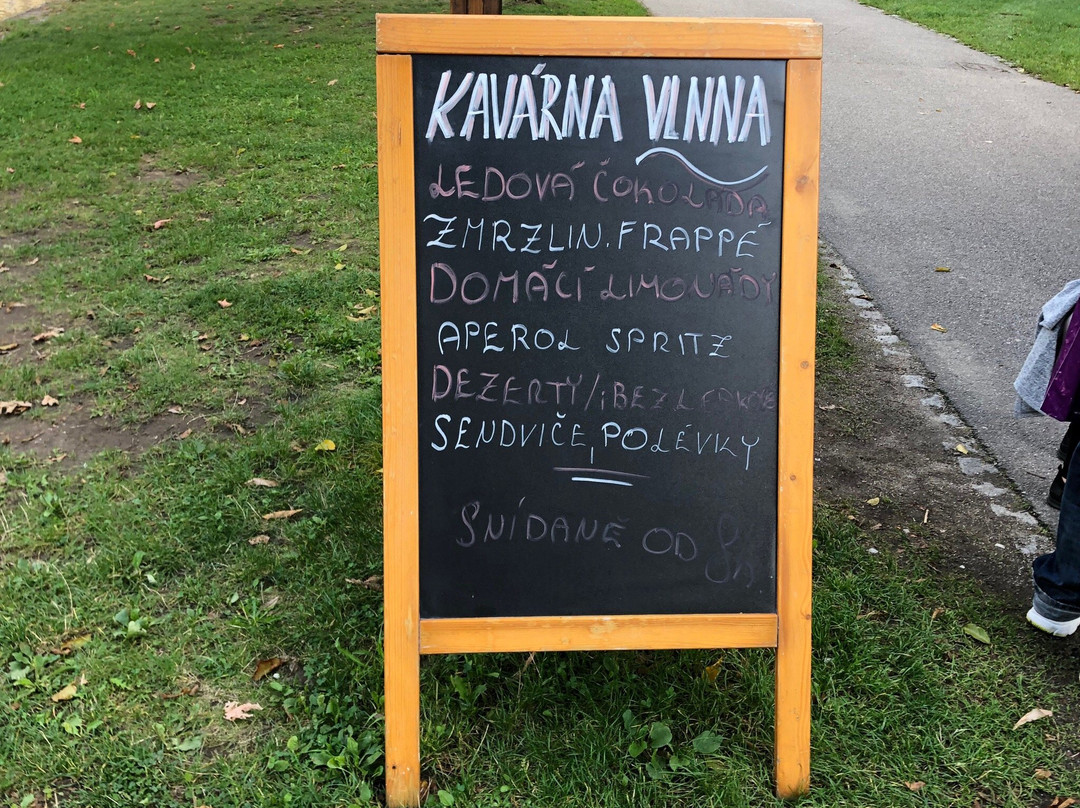 KAVÁRNA VLNNA
LEDOVÁ ČOKOLÁDA
ZMRZLIN. FRAPPÉ
DOMÁCÍ LIMONÁDY
APEROL SPRITZ
DEZERTY/i BEZLEPKOVÉ
SENDVIČE, POLÉVKY
SNÍDANĚ OD